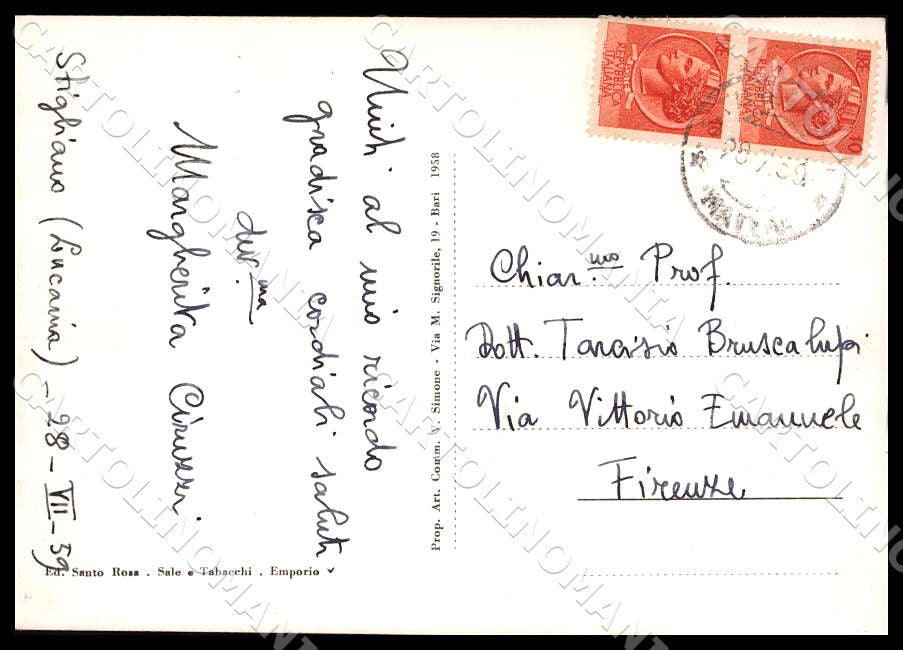 Stigliano (Lucania) - 28 - VII - 59
Uniti al mio ricordo
gradisca cordiali saluti
dev.ma
Margherita
Ed. Santo Rosa . Sale e Tabacchi . Emporio
Prop. Art. Comm. V. Simone - Via M. Signorile, 19 - Bari 1958
REPUBBLICA
ITALIANA
LIRE
10
REPUBBLICA
ITALIANA
LIRE
10
MATERA
Chiar.mo Prof.
Dott. Tarcisio Bruscalupi
Via Vittorio Emanuele
Firenze
CARTOLINOMANIA